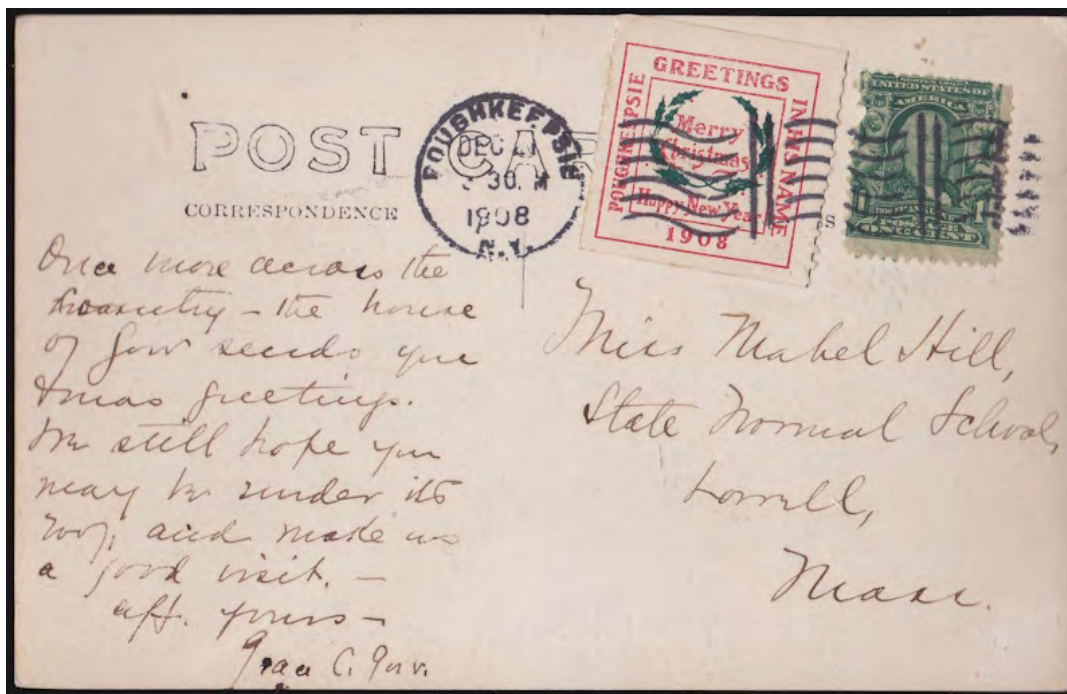 POST CAR
CORRESPONDENCE
POUGHKEEPSIE
DEC 21
30 M
1908
N.Y.
GREETINGS
POUGHKEEPSIE
IN HIS NAME
Merry
Christmas
Happy New Year
1908
SERIES 1902
UNITED STATES OF
AMERICA
FRANKLIN
POSTAGE
ONE CENT
Once more across the
country – the house
of Gow sends you
Xmas greetings.
We still hope you
may be under its
roof, and make us
a good visit. –
aff. yours –
Grace C. Gow.
Miss Mabel Hill,
State Normal School,
Lowell,
Mass.